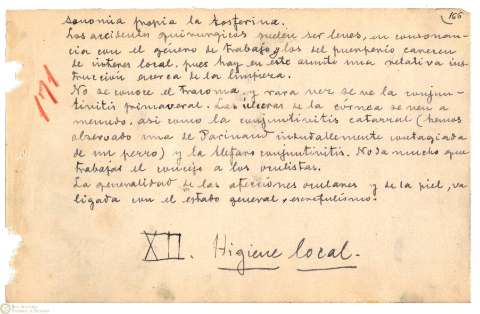 166
sonomia propia la tosferina.
Los accidentes quirurgicos suelen ser leves, en consonan-
cia con el género de trabajo y los del puerperio carecen
de interes local, pues hay en este asunto una relativa ins-
trucción acerca de la limpieza.
171
No se conoce el tracoma y rara vez se ve la conjun-
tivitis primaveral. Las úlceras de la córnea se ven a
menudo, asi como la conjuntivitis catarral (hemos
observado una de Parinaud indudablemente contagiada
de un perro) y la blefaro conjuntivitis. No da mucho que
trabajar el concejo a los oculistas.
La generalidad de las afecciones oculares y de la piel, va
ligada con el estado general, escrofulismo.
XII. Higiene local.